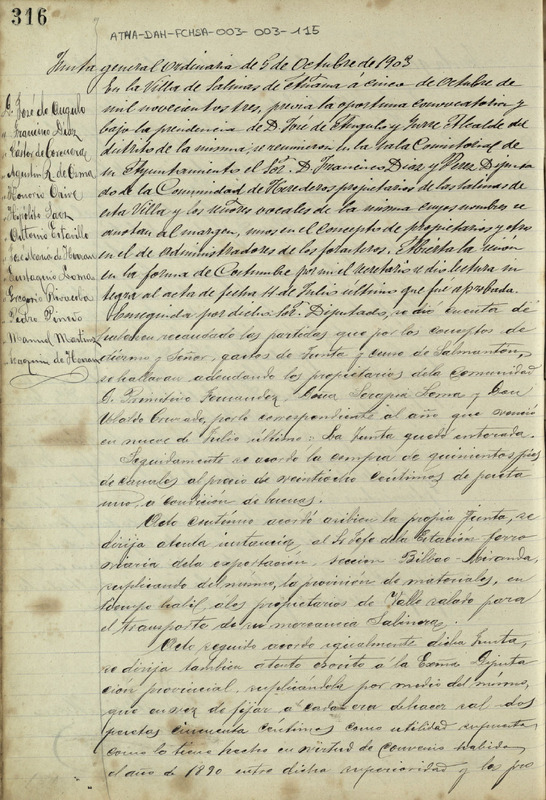 316
ATHA-DAH-FCHSA-003-003-115
Junta general ordinaria de 5 de Octubre de 1903
D. José de Angulo
" Francisco Diaz
" Agustin R. de
" Honorio Orive
" Hipolito Saez
" Antonio
" Eustaquio Loma
" Gregorio
" Pedro Pinedo
" Manuel Martinez
" Joaquin de
En la Villa de Salinas de Añana á cinco de Octubre de
mil novecientos tres, previa la oportuna convocatoria y
bajo la presidencia de D. José de Angulo y Yurre Alcalde del
distrito de la misma, se reunieron en la Sala Consistorial de
su Ayuntamiento el Sor. D. Francisco Diaz y Perez Diputa
do de la Comunidad de Herederos propietarios de las salinas de
esta Villa y los señores vocales de la misma cuyos nombres se
anotan al margen, unos en el concepto de propietarios y otros
en el de administradores de los forasteros. Abierta la sesion
en la forma de Costumbre por mi el secretario se dio lectura in
tegra al acta de fecha 11 de Julio último que fue aprobada.
Enseguida por dicho Sor. Diputado, se dió cuenta de
haberse recaudado las partidas que por los conceptos de
diezmo y Señor, gastos de Junta y censo de Salmantón,
se hallaban adeudando los propietarios de la comunidad
D. Primitivo Fernandez, Doña Serapia Loma y Don
Ubaldo Quezado, por lo correspondiente al año que venció
en nueve de Julio último: La Junta quedó enterada.
Seguidamente se acordó la compra de quinientos pies
de canales al precio de veintiocho céntimos de peseta
uno, a condición de buenos.
Acto continuo acordó tambien la propia Junta, se
dirija atenta instancia, al Sr. Jefe de la Estacion ferro
viaria de la esportación, seccion Bilbao-Miranda,
suplicando del mismo, la provisión de materiales, en
tiempo habil, a los propietarios de Valle salado para
el transporte de su mercancia Salinera.
Acto seguido acordó igualmente dicha Junta,
se dirija tambien atento escrito á la Exma Diputa
cion provincial, suplicándola por medio del mismo,
que en vez de fijar á cada era de hacer sal dos
pesetas cincuenta céntimos como utilidad supuesta
como lo tiene hecho en virtud de convenio habido
el año de 1890 entre dicha superioridad y los pro